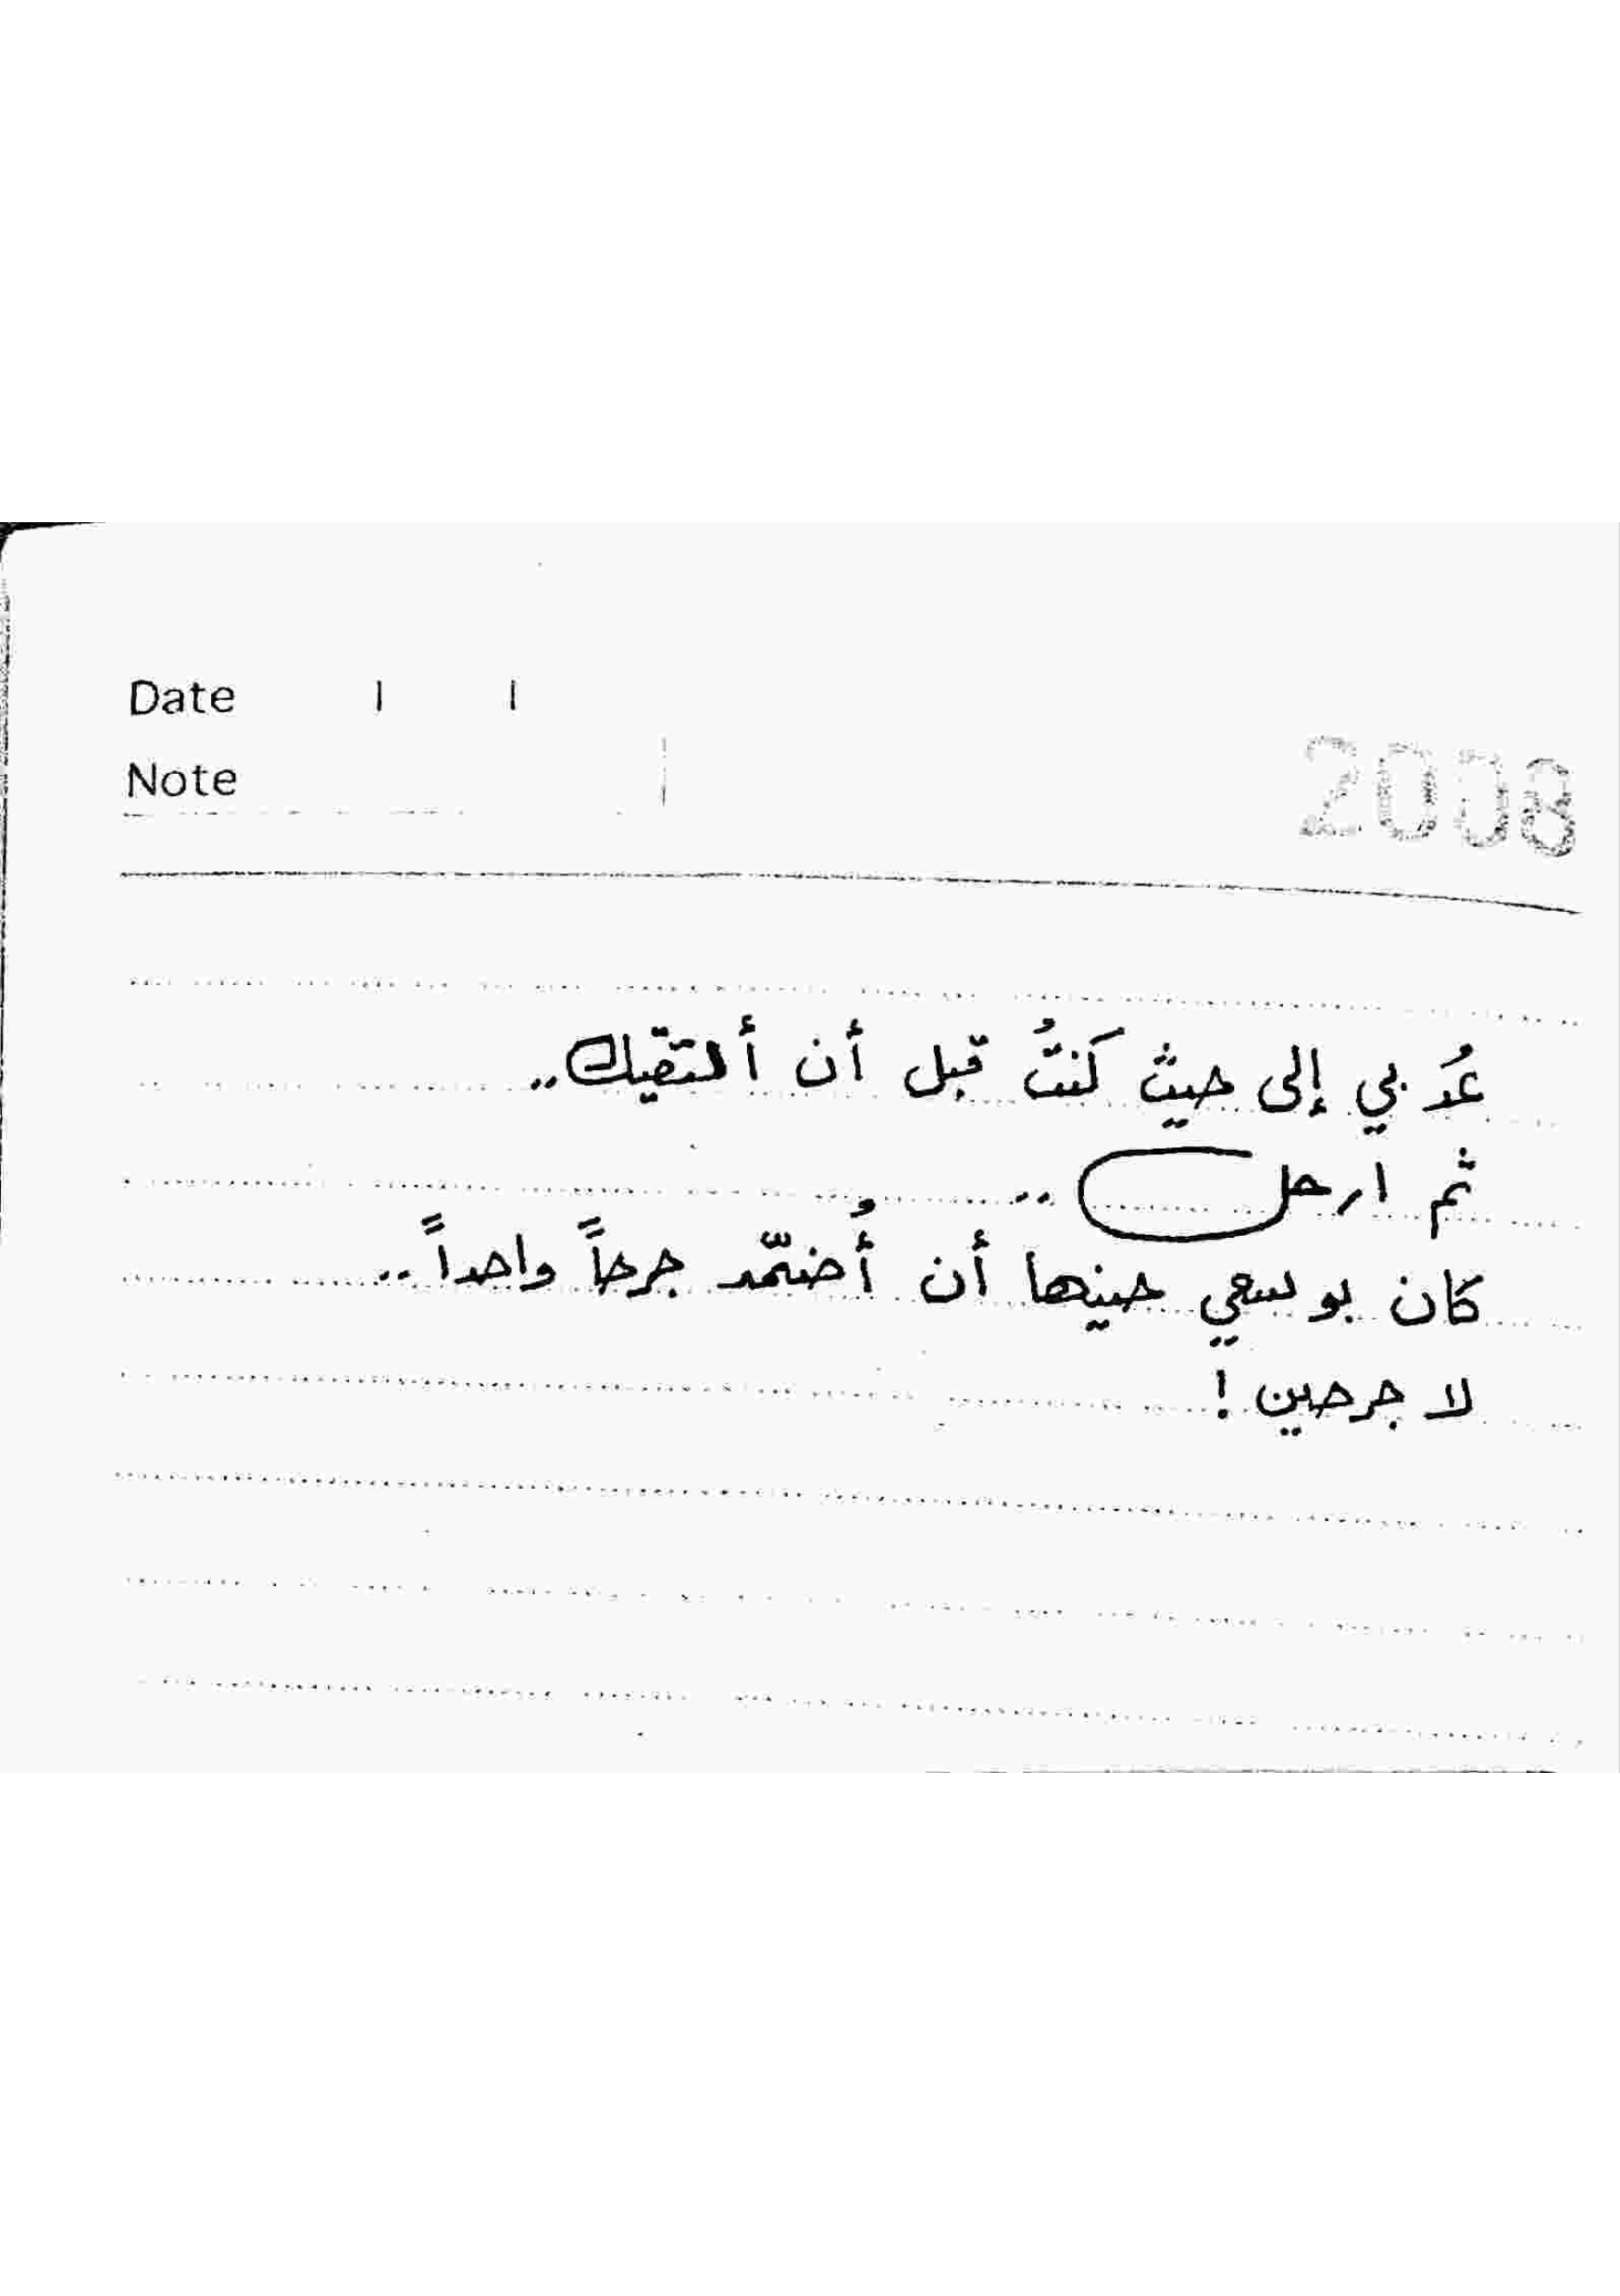 Date / /
Note
2008
عُد بي إلى حيث كنتُ قبل أن ألتقيك..
ثم ارحل ..
كان بوسعي حينها أن أُضمّد جرحاً واحداً..
لا جرحين !